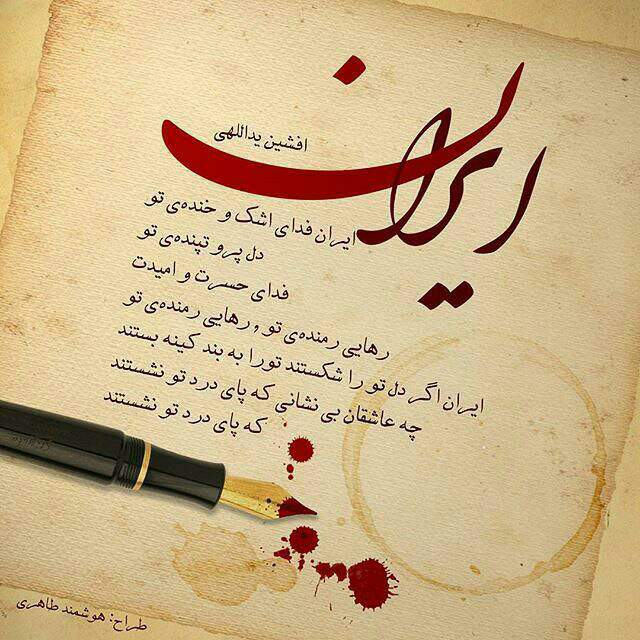 ایران
افشین یداللهی
ایران فدای اشک و خنده‌ی تو
دل پر و تپنده‌ی تو
فدای حسرت و امیدت
رهایی رمنده‌ی تو و رهایی رمنده‌ی تو
ایران اگر دل تو را شکستند تورا به بند کینه بستند
چه عاشقان بی نشانی که پای درد تو نشستند
که پای درد تو نشستند
طراح: هوشمند طاهری